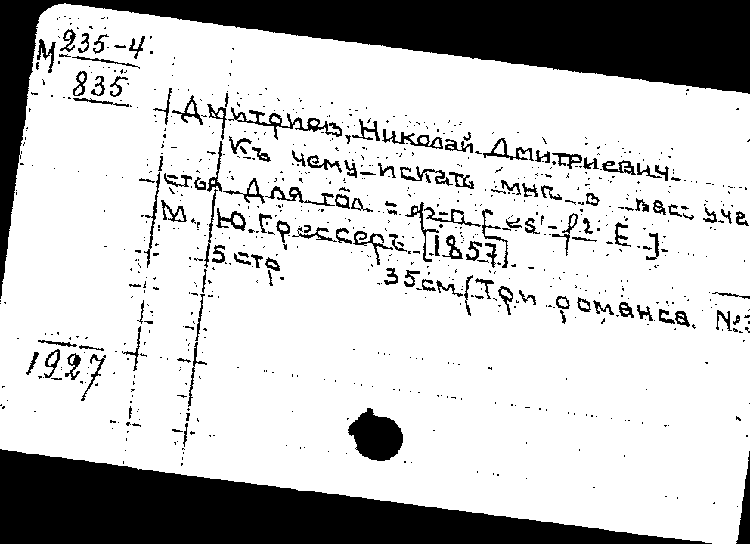 М 235-4.
835
Дмитриев, Николай Дмитриевич.
Къ чему искать мнѣ в вас уча-
стья Для гол. = ф-п [es'-f2. E]
М., Ю. Грессеръ [1857].
5 стр. 35 см. (Три романса. №3
1927